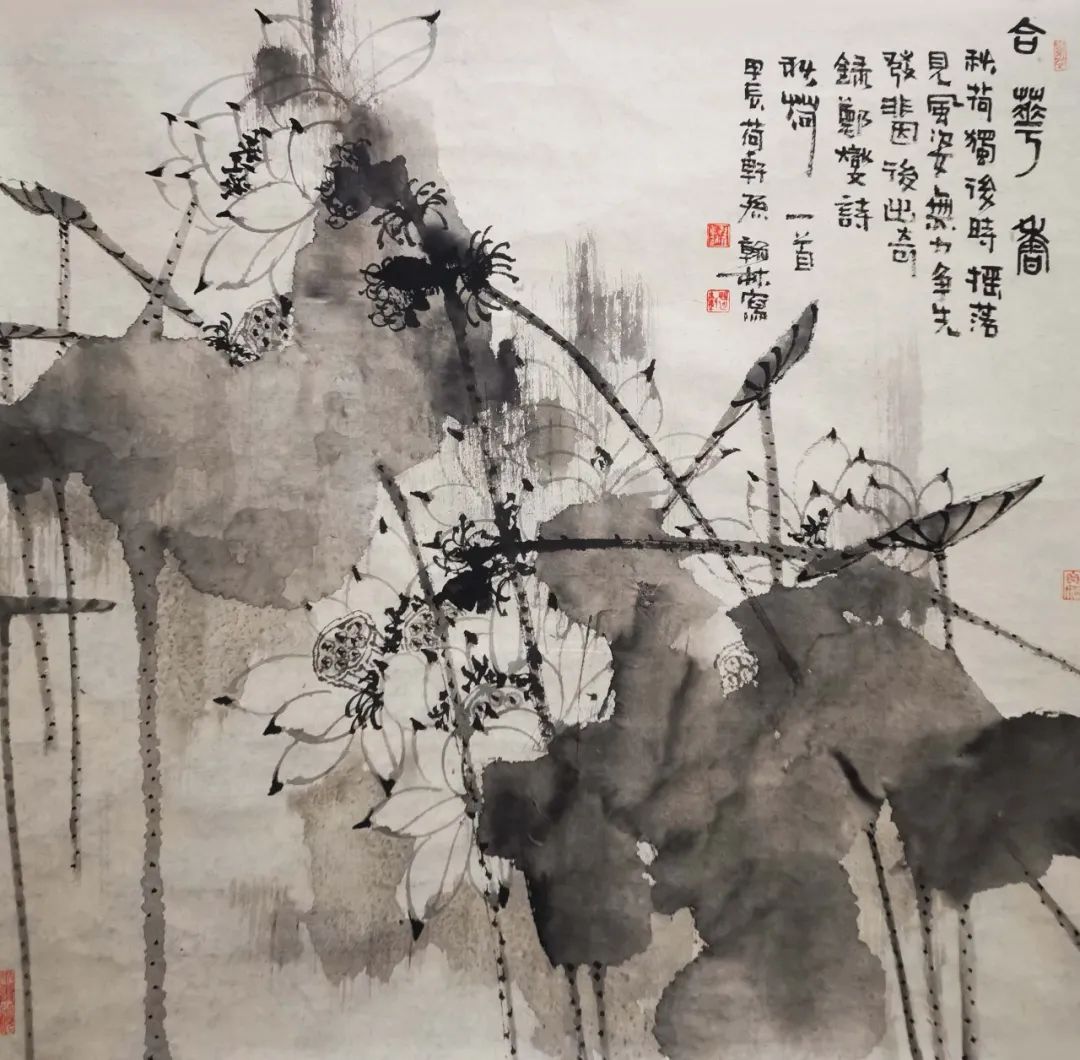 合華香
秋荷獨後時摇落
見風姿無力争先
發非因後出奇
錄鄭燮詩
秋荷一首
甲辰荷軒孫翰林寫